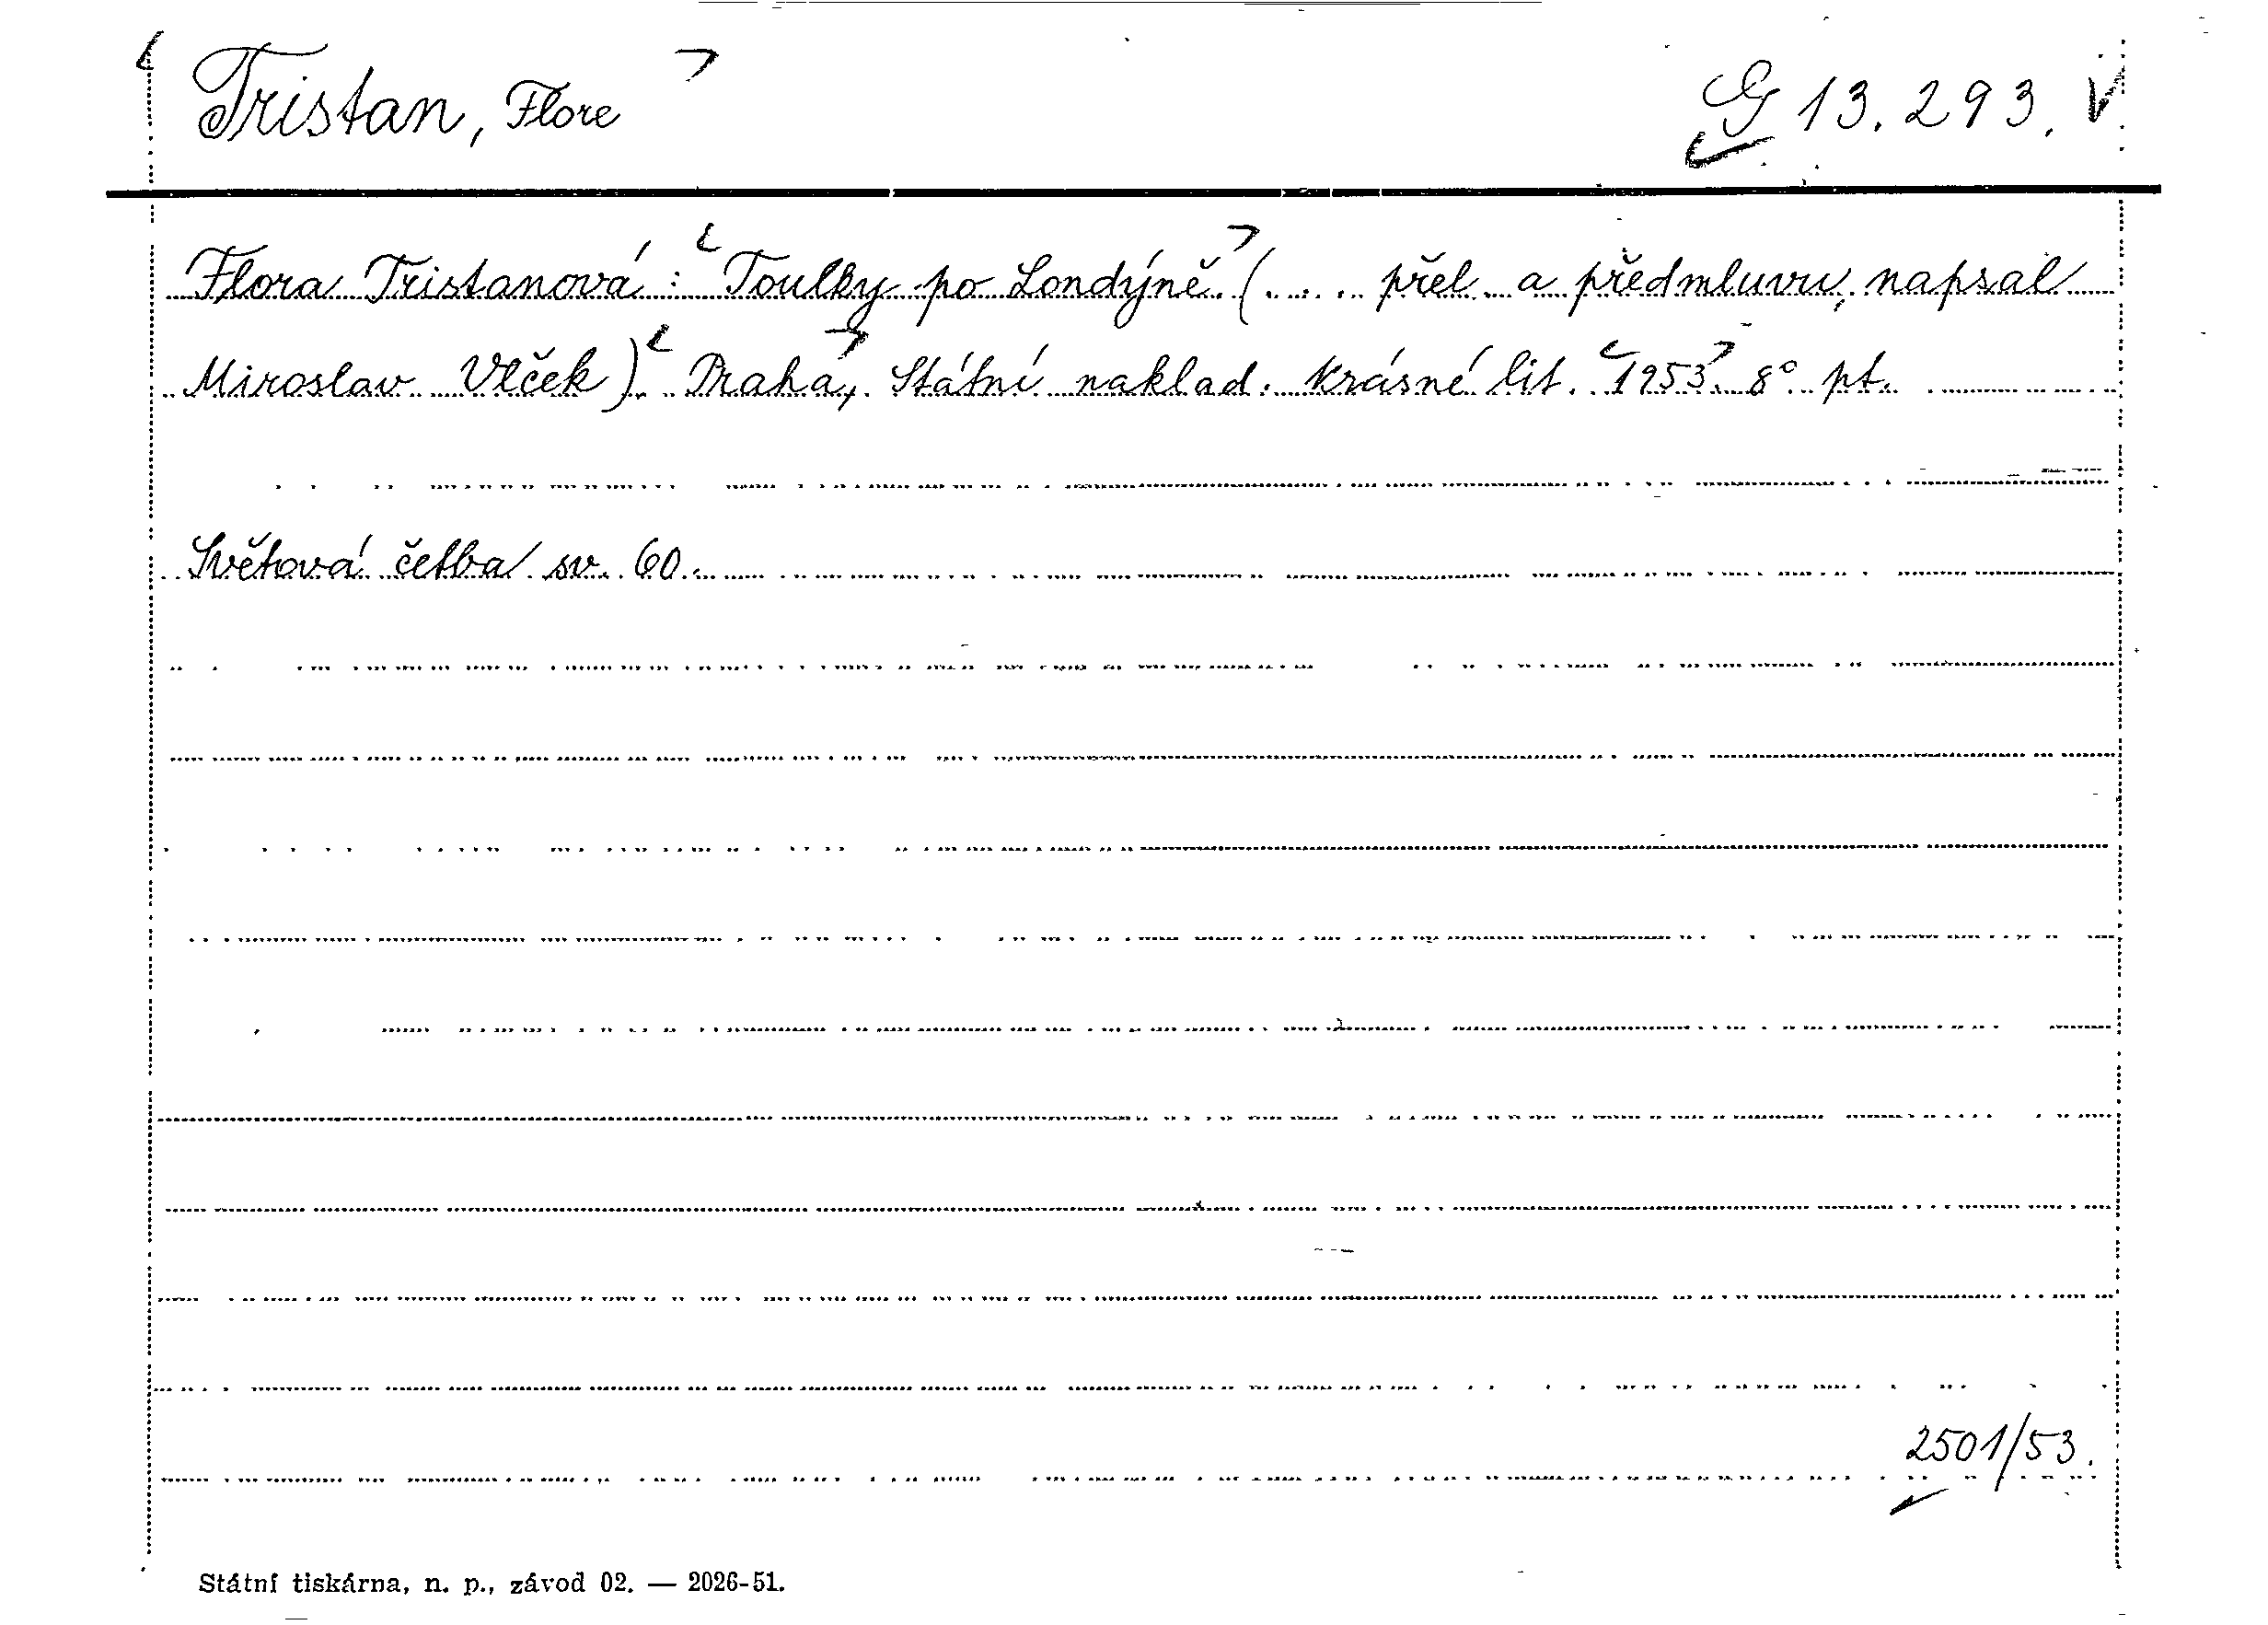 Tristan, Flore
G 13.293. V
Flora Tristanová : Toulky po Londýně (.... přel. a předmluvu napsal
Miroslav Vlček). Praha, Státní naklad. krásné lit. 1953. 8° pt.
Světová četba sv. 60.
2501/53.
Státní tiskárna, n. p., závod 02. — 2026-51.